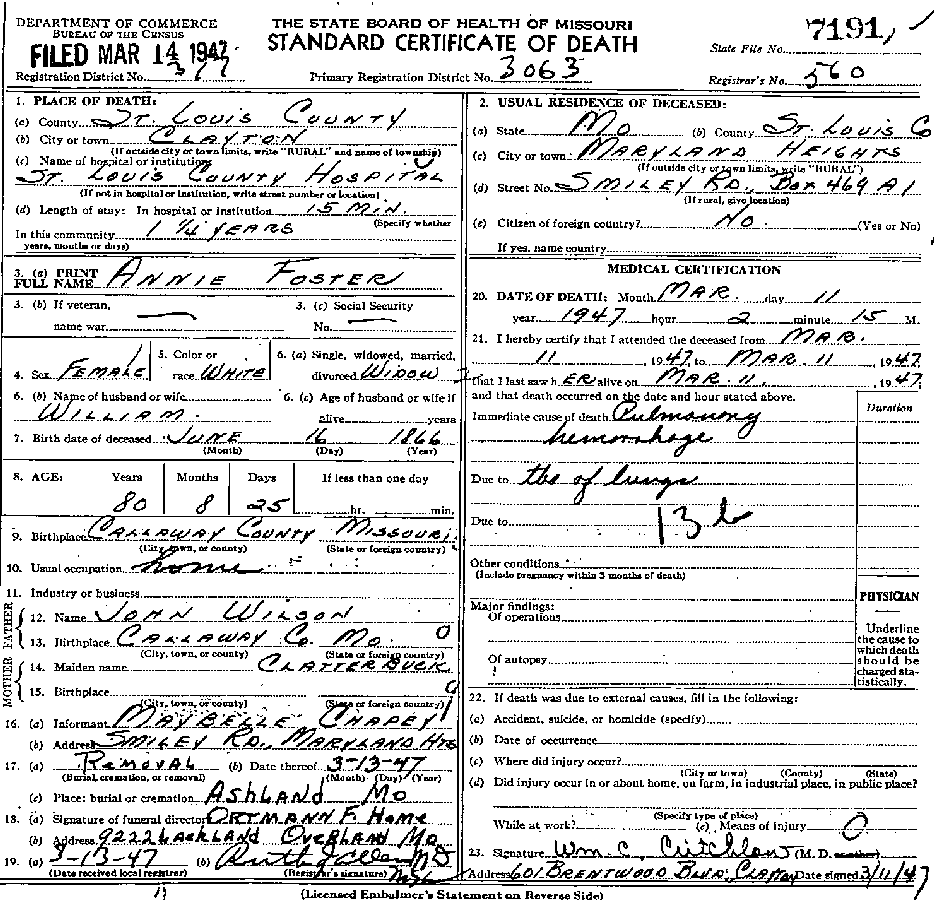 DEPARTMENT OF COMMERCE
BUREAU OF THE CENSUS
FILED MAR 14 1947
Registration District No. 377
THE STATE BOARD OF HEALTH OF MISSOURI
STANDARD CERTIFICATE OF DEATH
Primary Registration District No. 3063
State File No. 7191
Registrar's No. 560
1. PLACE OF DEATH:
(a) County ST. LOUIS COUNTY
(b) City or town CLAYTON
(If outside city or town limits, write "RURAL" and name of township)
(c) Name of hospital or institution:
ST. LOUIS COUNTY HOSPITAL
(If not in hospital or institution, write street number or location)
(d) Length of stay: In hospital or institution 15 MIN.
(Specify whether
In this community 1 1/4 YEARS
years, months or days)
3. (a) PRINT FULL NAME ANNIE FOSTER
3. (b) If veteran, name war —
3. (c) Social Security No. —
4. Sex FEMALE
5. Color or race WHITE
6. (a) Single, widowed, married, divorced WIDOW
6. (b) Name of husband or wife
WILLIAM.
6. (c) Age of husband or wife if alive years
7. Birth date of deceased JUNE 16 1866
(Month) (Day) (Year)
8. AGE: Years Months Days If less than one day
80 8 25 hr. min.
9. Birthplace CALLAWAY COUNTY MISSOURI
(City, town, or county) (State or foreign country)
10. Usual occupation home
11. Industry or business
FATHER
12. Name JOHN WILSON
13. Birthplace CALLAWAY CO. MO. 0
(City, town, or county) (State or foreign country)
MOTHER
14. Maiden name CLATTERBUCK
15. Birthplace
(City, town, or county) (State or foreign country)
16. (a) Informant MAYBELLE CHAPEY
(b) Address SMILEY RD., MARYLAND HTS
17. (a) REMOVAL (b) Date thereof 3-13-47
(Burial, cremation, or removal) (Month) (Day) (Year)
(c) Place: burial or cremation ASHLAND MO
18. (a) Signature of funeral director ORTMANN F. HOME
(b) Address 9222 LACKLAND OVERLAND MO
19. (a) 3-13-47 (b)
(Date received local registrar) (Registrar's signature)
2. USUAL RESIDENCE OF DECEASED:
(a) State MO (b) County ST. LOUIS CO
(c) City or town MARYLAND HEIGHTS
(If outside city or town limits, write "RURAL")
(d) Street No. SMILEY RD., BOX 469 A1
(If rural, give location)
(e) Citizen of foreign country? NO. (Yes or No)
If yes, name country
MEDICAL CERTIFICATION
20. DATE OF DEATH: Month MAR. day 11
year 1947 hour 2 minute 15 M.
21. I hereby certify that I attended the deceased from MAR.
11, 1947, to MAR. 11, 1947
that I last saw hER alive on MAR. 11., 1947,
and that death occurred on the date and hour stated above.
Duration
Immediate cause of death Pulmonary
hemorrhage
Due to tbs of lungs
Due to 13b
Other conditions
(Include pregnancy within 3 months of death)
Major findings:
Of operations
Of autopsy
PHYSICIAN
Underline the cause to which death should be charged statistically.
22. If death was due to external causes, fill in the following:
(a) Accident, suicide, or homicide (specify)
(b) Date of occurrence
(c) Where did injury occur?
(City or town) (County) (State)
(d) Did injury occur in or about home, on farm, in industrial place, in public place?
(Specify type of place)
While at work? (e) Means of injury 0
23. Signature Wm. C. (M. D.
Address 601 BRENTWOOD BLVD. CLAYTON Date signed 3/11/47
(Licensed Embalmer's Statement on Reverse Side)